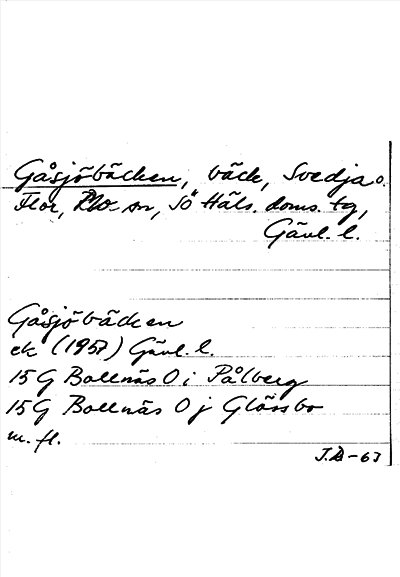 Gåsjöbäcken, bäck, Svedja o.
Flor, Mo sn, Sö Häls. doms. tg,
Gävl. l.
Gåsjöbäcken
ek (1957) Gävl. l.
15 G Bollnäs 0 i Pålberg
15 G Bollnäs 0 j Glössbo
m. fl.
J.D-63